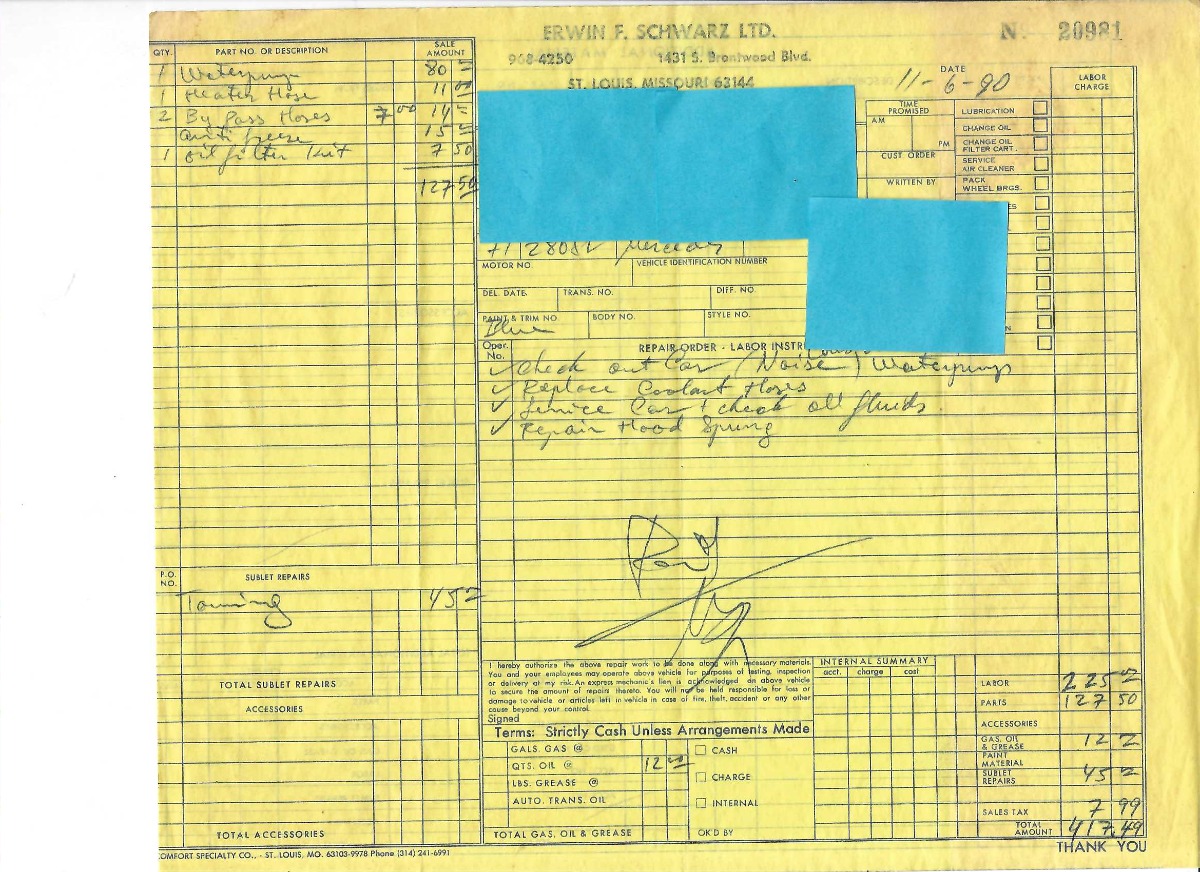 ERWIN F. SCHWARZ LTD.
968-4250 1431 S. Brentwood Blvd.
ST. LOUIS, MISSOURI 63144
No. 20981
QTY. PART NO. OR DESCRIPTION SALE AMOUNT
1 Waterpump 80 -
1 Heater Hose 11 00
2 By Pass Hoses 7 00 14 -
anti freeze 15 -
1 oil filter Kit 7 50
127 50
DATE 11-6-90
LABOR CHARGE
TIME PROMISED
AM
PM
CUST ORDER
WRITTEN BY
LUBRICATION
CHANGE OIL
CHANGE OIL FILTER CART.
SERVICE AIR CLEANER
PACK WHEEL BRGS.
71 280SL Mercedes
MOTOR NO. VEHICLE IDENTIFICATION NUMBER
DEL. DATE. TRANS. NO. DIFF. NO.
PAINT & TRIM NO. BODY NO. STYLE NO.
Blue
Oper. No. REPAIR ORDER - LABOR INSTR
✓ Check out Car (Noise) Waterpump
✓ Replace Coolant Hoses
✓ Service Car + check all fluids.
✓ Repair Hood Spring
Paid
P.O. NO. SUBLET REPAIRS
Towing 45 -
TOTAL SUBLET REPAIRS
ACCESSORIES
TOTAL ACCESSORIES
I hereby authorize the above repair work to be done along with necessary materials.
You and your employees may operate above vehicle for purposes of testing, inspection
or delivery at my risk. An express mechanic's lien is acknowledged on above vehicle
to secure the amount of repairs thereto. You will not be held responsible for loss or
damage to vehicle or articles left in vehicle in case of fire, theft, accident or any other
cause beyond your control.
Signed
Terms: Strictly Cash Unless Arrangements Made
GALS. GAS @
QTS. OIL @ 12 00
LBS. GREASE @
AUTO. TRANS. OIL
TOTAL GAS, OIL & GREASE
CASH
CHARGE
INTERNAL
OK'D BY
INTERNAL SUMMARY
acct. charge cost
LABOR 225 -
PARTS 127 50
ACCESSORIES
GAS, OIL & GREASE 12 -
PAINT MATERIAL
SUBLET REPAIRS 45 -
SALES TAX 7 99
TOTAL AMOUNT 417.49
THANK YOU
COMFORT SPECIALTY CO., - ST. LOUIS, MO. 63103-9978 Phone (314) 241-6991